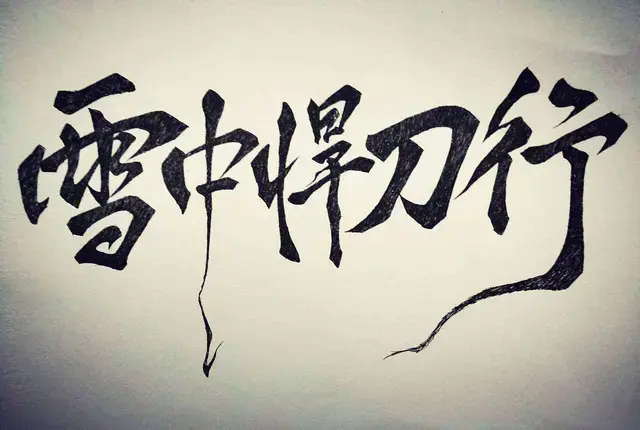 雪中悍刀行